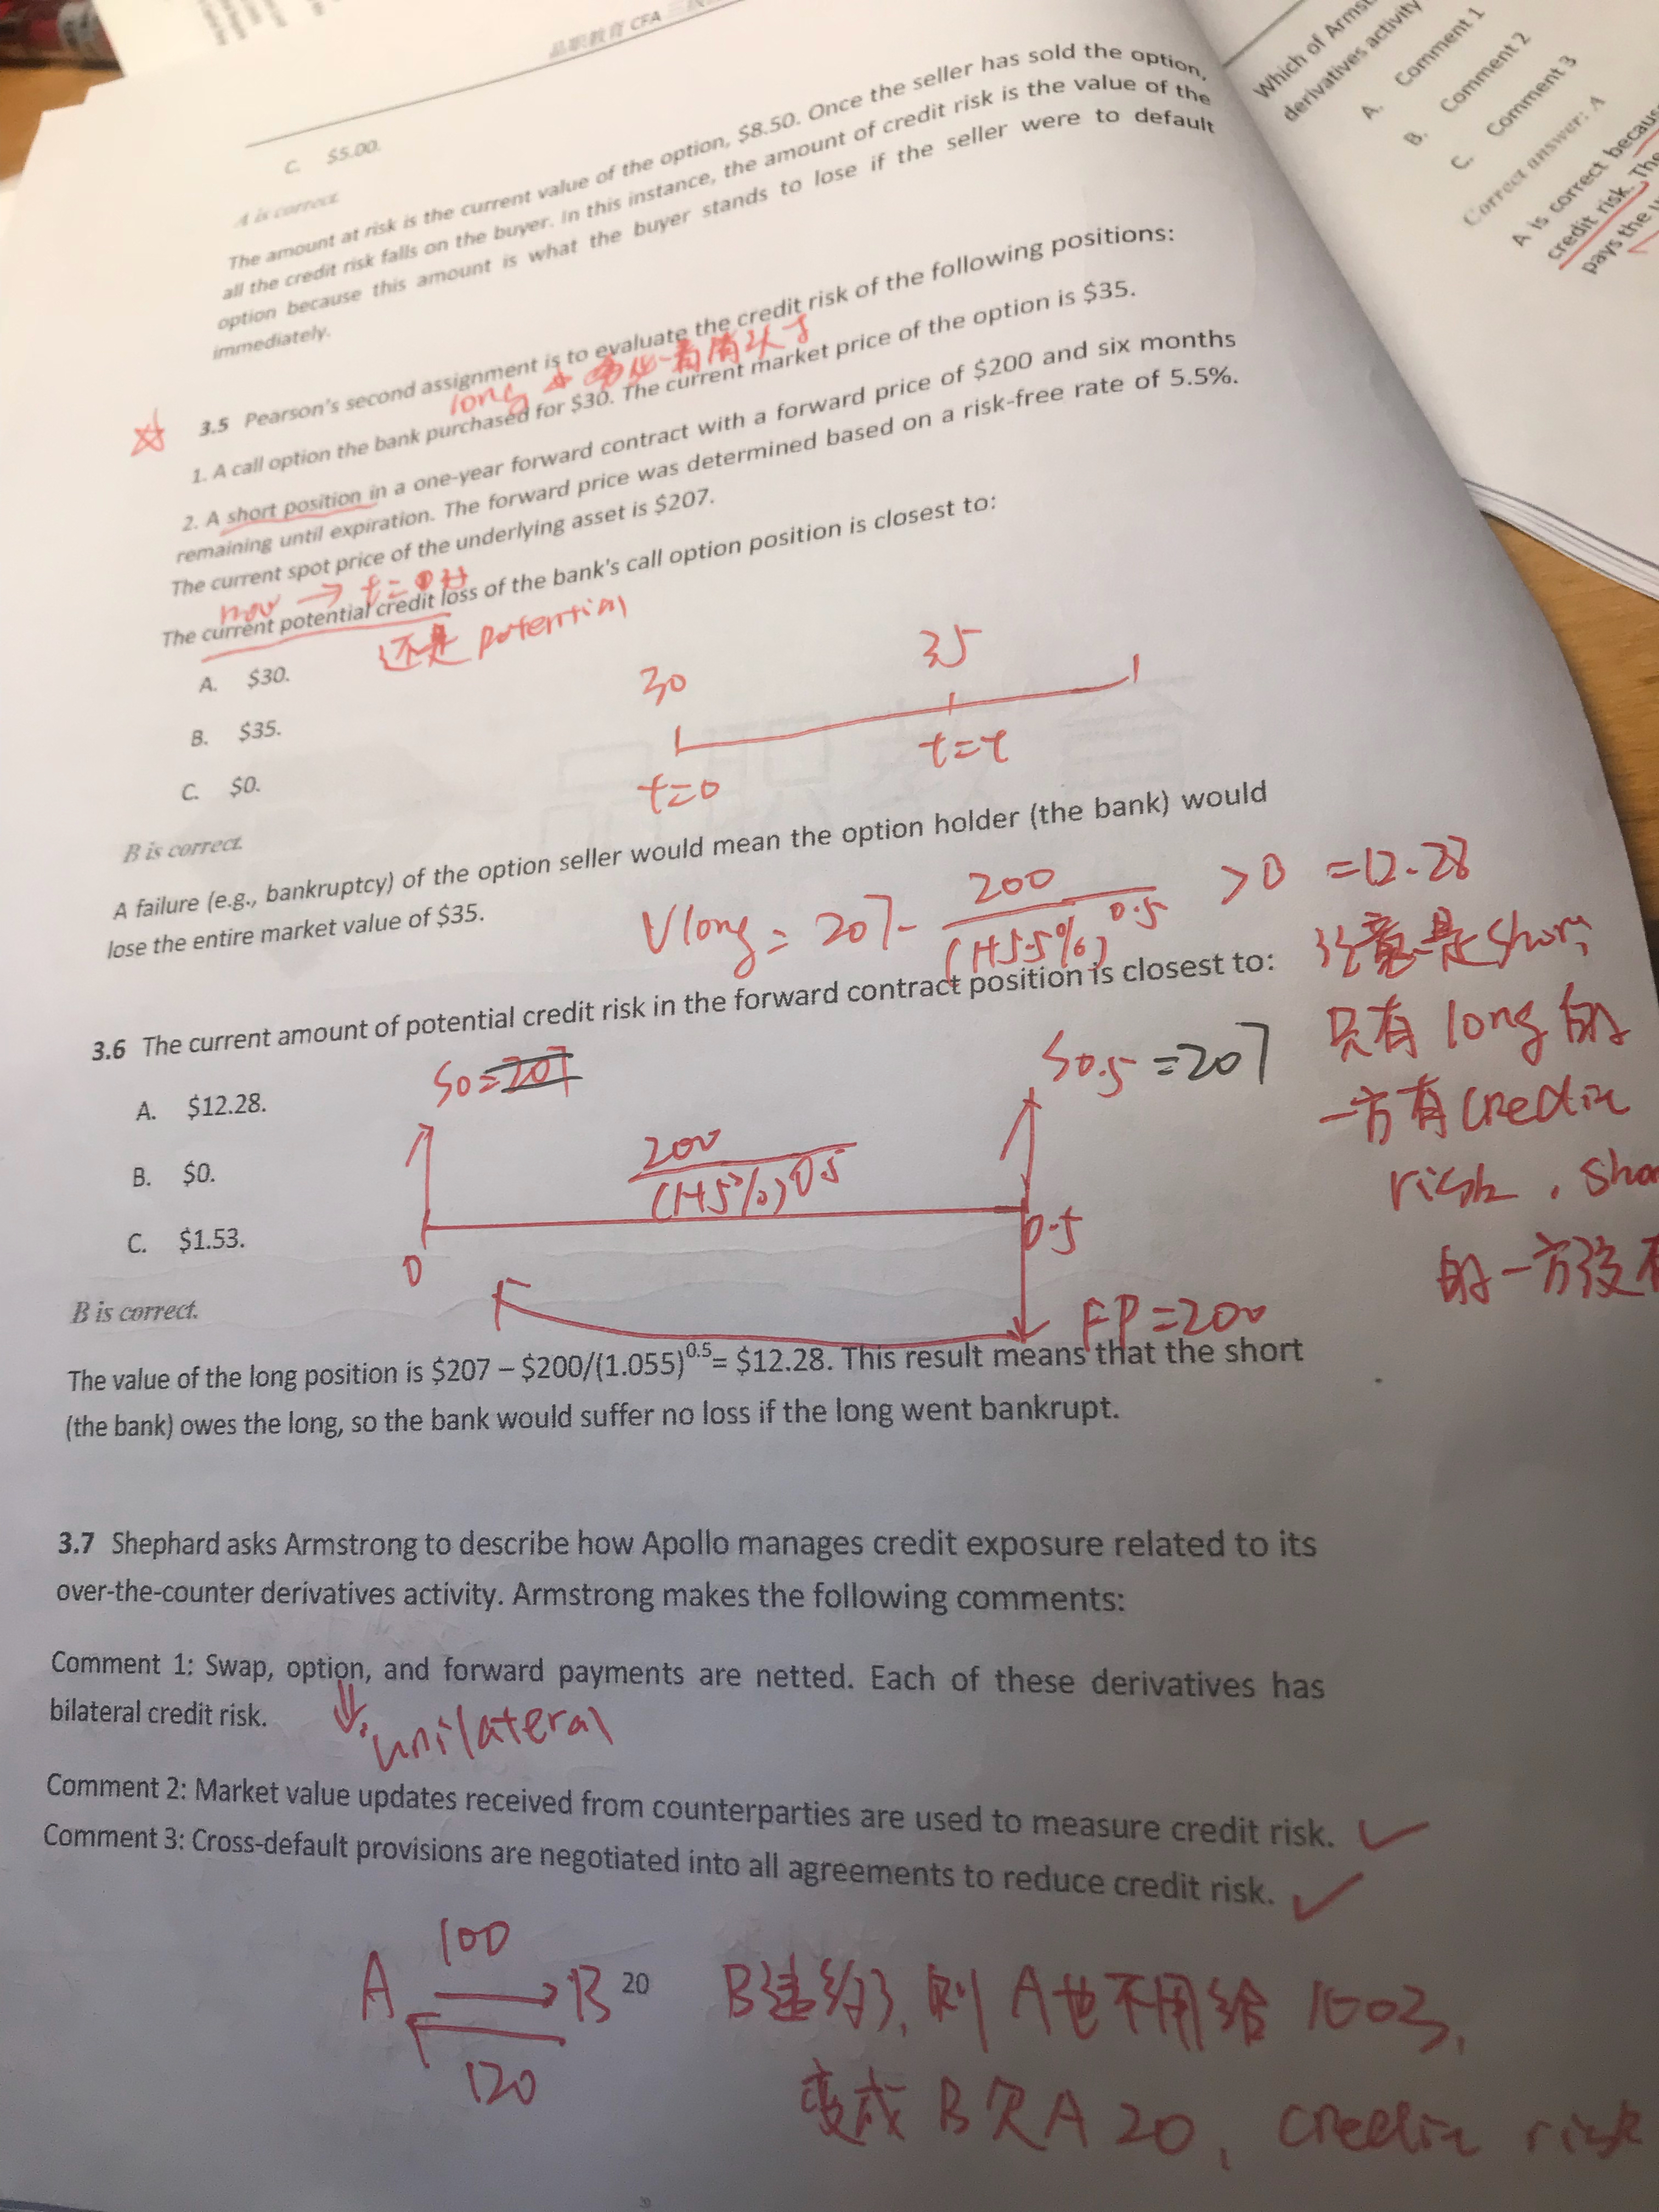 品职教育 CFA 三级
C. $5.00.
A is correct.
The amount at risk is the current value of the option, $8.50. Once the seller has sold the option,
all the credit risk falls on the buyer. In this instance, the amount of credit risk is the value of the
option because this amount is what the buyer stands to lose if the seller were to default
immediately.
3.5 Pearson's second assignment is to evaluate the credit risk of the following positions:
long
1. A call option the bank purchased for $30. The current market price of the option is $35.
2. A short position in a one-year forward contract with a forward price of $200 and six months
remaining until expiration. The forward price was determined based on a risk-free rate of 5.5%.
The current spot price of the underlying asset is $207.
now → t=
The current potential credit loss of the bank's call option position is closest to:
还是 potential
A. $30.
B. $35.
C. $0.
30
35
t=0
t=t
B is correct.
A failure (e.g., bankruptcy) of the option seller would mean the option holder (the bank) would
lose the entire market value of $35.
Vlong = 207 - 200/(1+5.5%)^0.5 >0 =12.28
3.6 The current amount of potential credit risk in the forward contract position is closest to:
注意是short
只有 long 的
一方有credit
risk, sho
的一方没有
A. $12.28.
B. $0.
C. $1.53.
S0=207
S0.5=207
200/(1+5%)^0.5
0
0.5
FP=200
B is correct.
The value of the long position is $207 – $200/(1.055)^0.5= $12.28. This result means that the short
(the bank) owes the long, so the bank would suffer no loss if the long went bankrupt.
3.7 Shephard asks Armstrong to describe how Apollo manages credit exposure related to its
over-the-counter derivatives activity. Armstrong makes the following comments:
Comment 1: Swap, option, and forward payments are netted. Each of these derivatives has
bilateral credit risk.
unilateral
Comment 2: Market value updates received from counterparties are used to measure credit risk. ✓
Comment 3: Cross-default provisions are negotiated into all agreements to reduce credit risk. ✓
A 100 → B
← 120
20
B违约了, 则 A也不用给 100了,
变成 B欠A 20, credit risk
Which of Armst
derivatives activity
A. Comment 1
B. Comment 2
C. Comment 3
Correct answer: A
A is correct becaus
credit risk. The
pays the